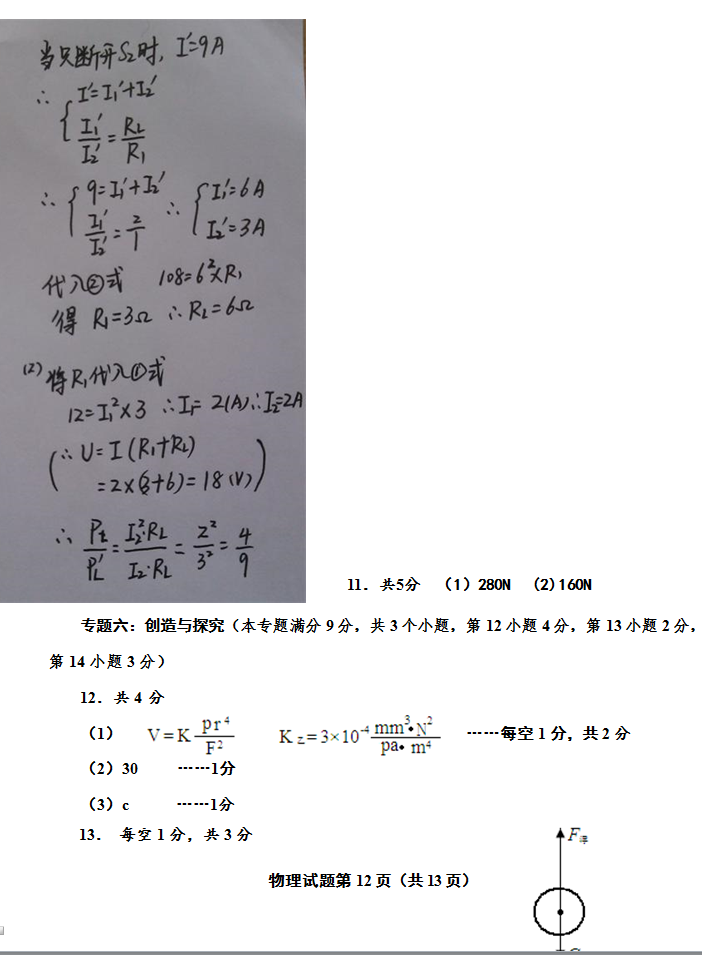 当只断开S2时, I'=9A
∴ { I'=I1'+I2'
I1'/I2' = RL/R1
∴ { 9=I1'+I2' ∴ { I1'=6A
I1'/I2' = 2/1 I2'=3A
代入②式 108=6²×R1
得 R1=3Ω ∴RL=6Ω
(2) 将R1代入①式
12=I1²×3 ∴I1= 2(A)∴I2=2A
(∴U=I(R1+RL)
=2×(3+6)=18(V))
∴ PL/PL' = I2²·RL/I2·RL = 2²/3² = 4/9
11. 共5分 (1) 280N (2)160N
专题六：创造与探究（本专题满分9分，共3个小题，第12小题4分，第13小题2分，
第14小题3分）
12．共 4 分
（1） V=K pr⁴/F² K z=3×10⁻⁴ mm³•N²/pa•m⁴ ……每空1分，共2分
（2）30 ……1分
（3）c ……1分
13． 每空1分，共3分
F浮
物理试题第12页（共13页）